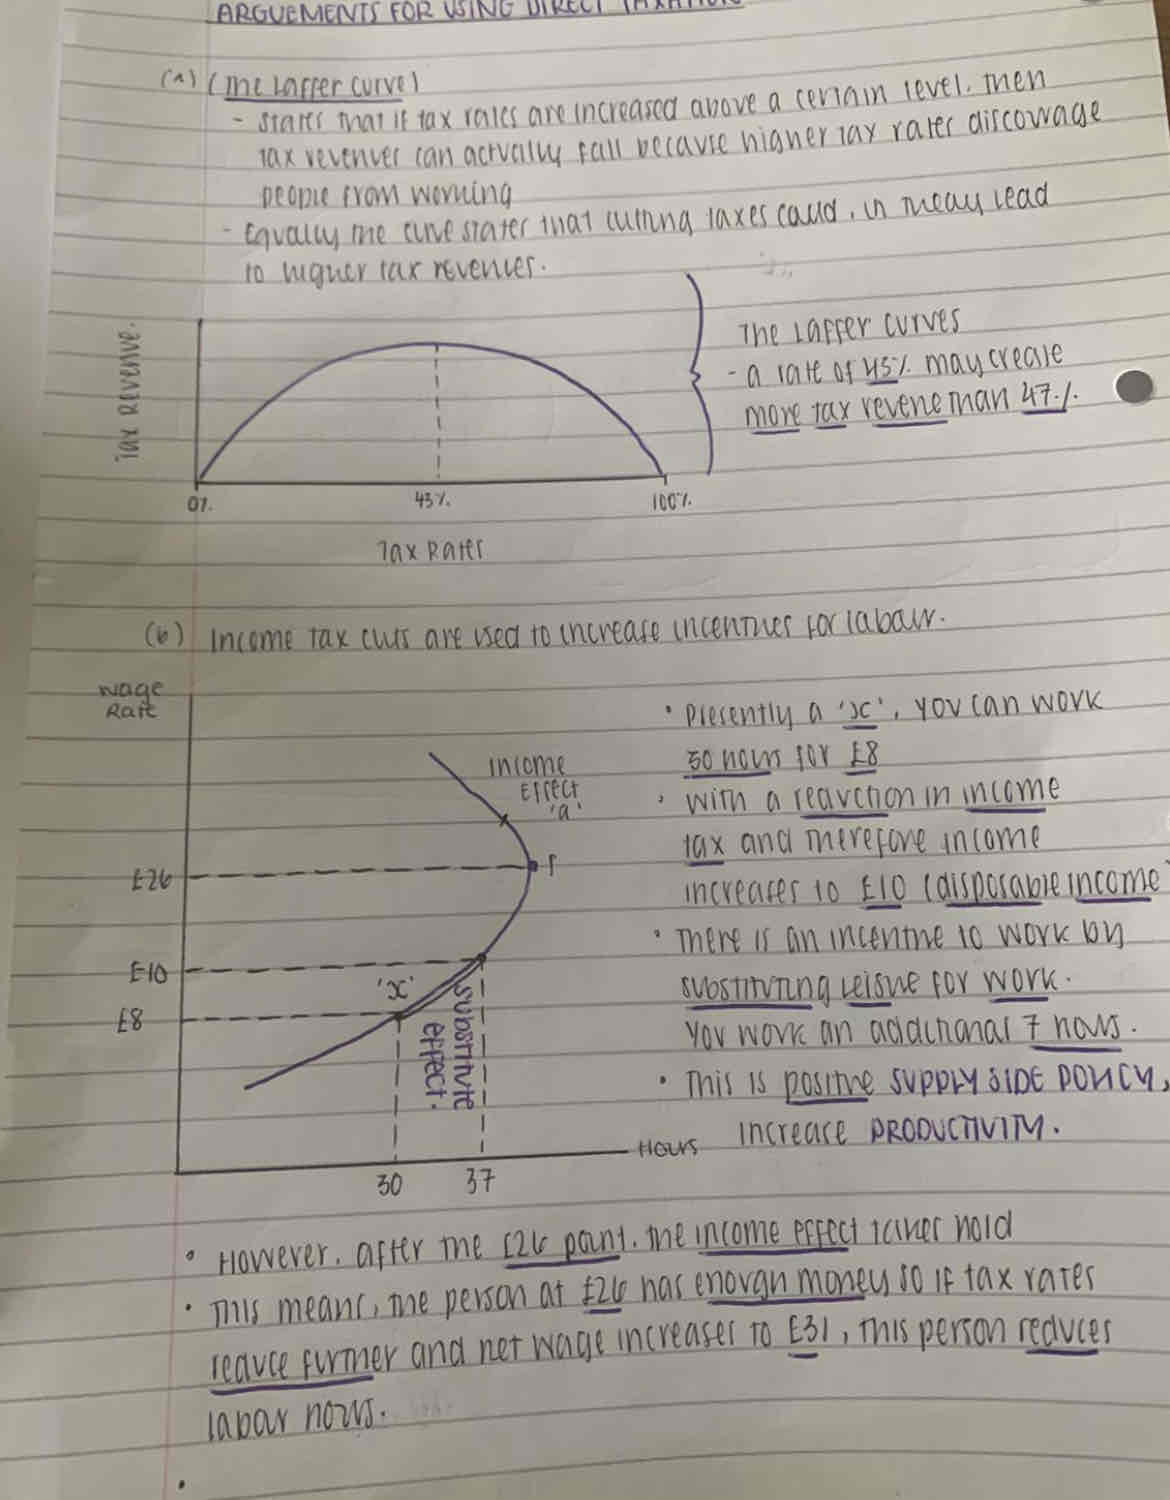 ARGUEMENTS FOR USING DIRECT TAXATION
(a) (The Laffer Curve)
- States that if tax rates are increased above a certain level, then
tax revenues can actually fall because higher tax rates discourage
people from working
- Equally the curve states that cutting taxes could, in theory, lead
to higher tax revenues.
Tax Revenue.
The Laffer curves
- a rate of 45% may create
more tax revene than 47%.
0%.
45%.
100%.
Tax Rates
(b) Income tax cuts are used to increase incentives for labour.
Wage
Rate
Income
Effect
'a'
£26
£10
£8
'x'
substitute
effect.
30
37
Hours
• Presently a 'x', you can work
30 hours for £8
• with a reduction in income
tax and therefore income
increases to £10 (disposable income
• There is an incentive to work by
substituting leisure for work.
You work an additional 7 hours.
• This is positive SUPPLY SIDE POLICY,
Increase PRODUCTIVITY.
• However, after the £26 point, the income effect takes hold
• This means, the person at £26 has enough money so if tax rates
reduce further and net wage increases to £31, this person reduces
labour hours.